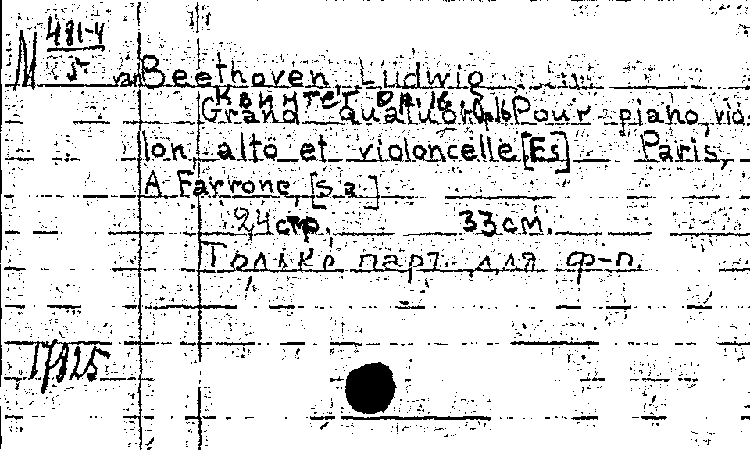 М 481-4
5
van Beethoven Ludwig
Квинтет Op. 16
Grand quatuor Op.16 Pour piano, vio-
lon, alto et violoncelle [Es] Paris,
A Farrenc, [s.a.]
24 стр. 33 см.
Только парт. для ф-п.
17825